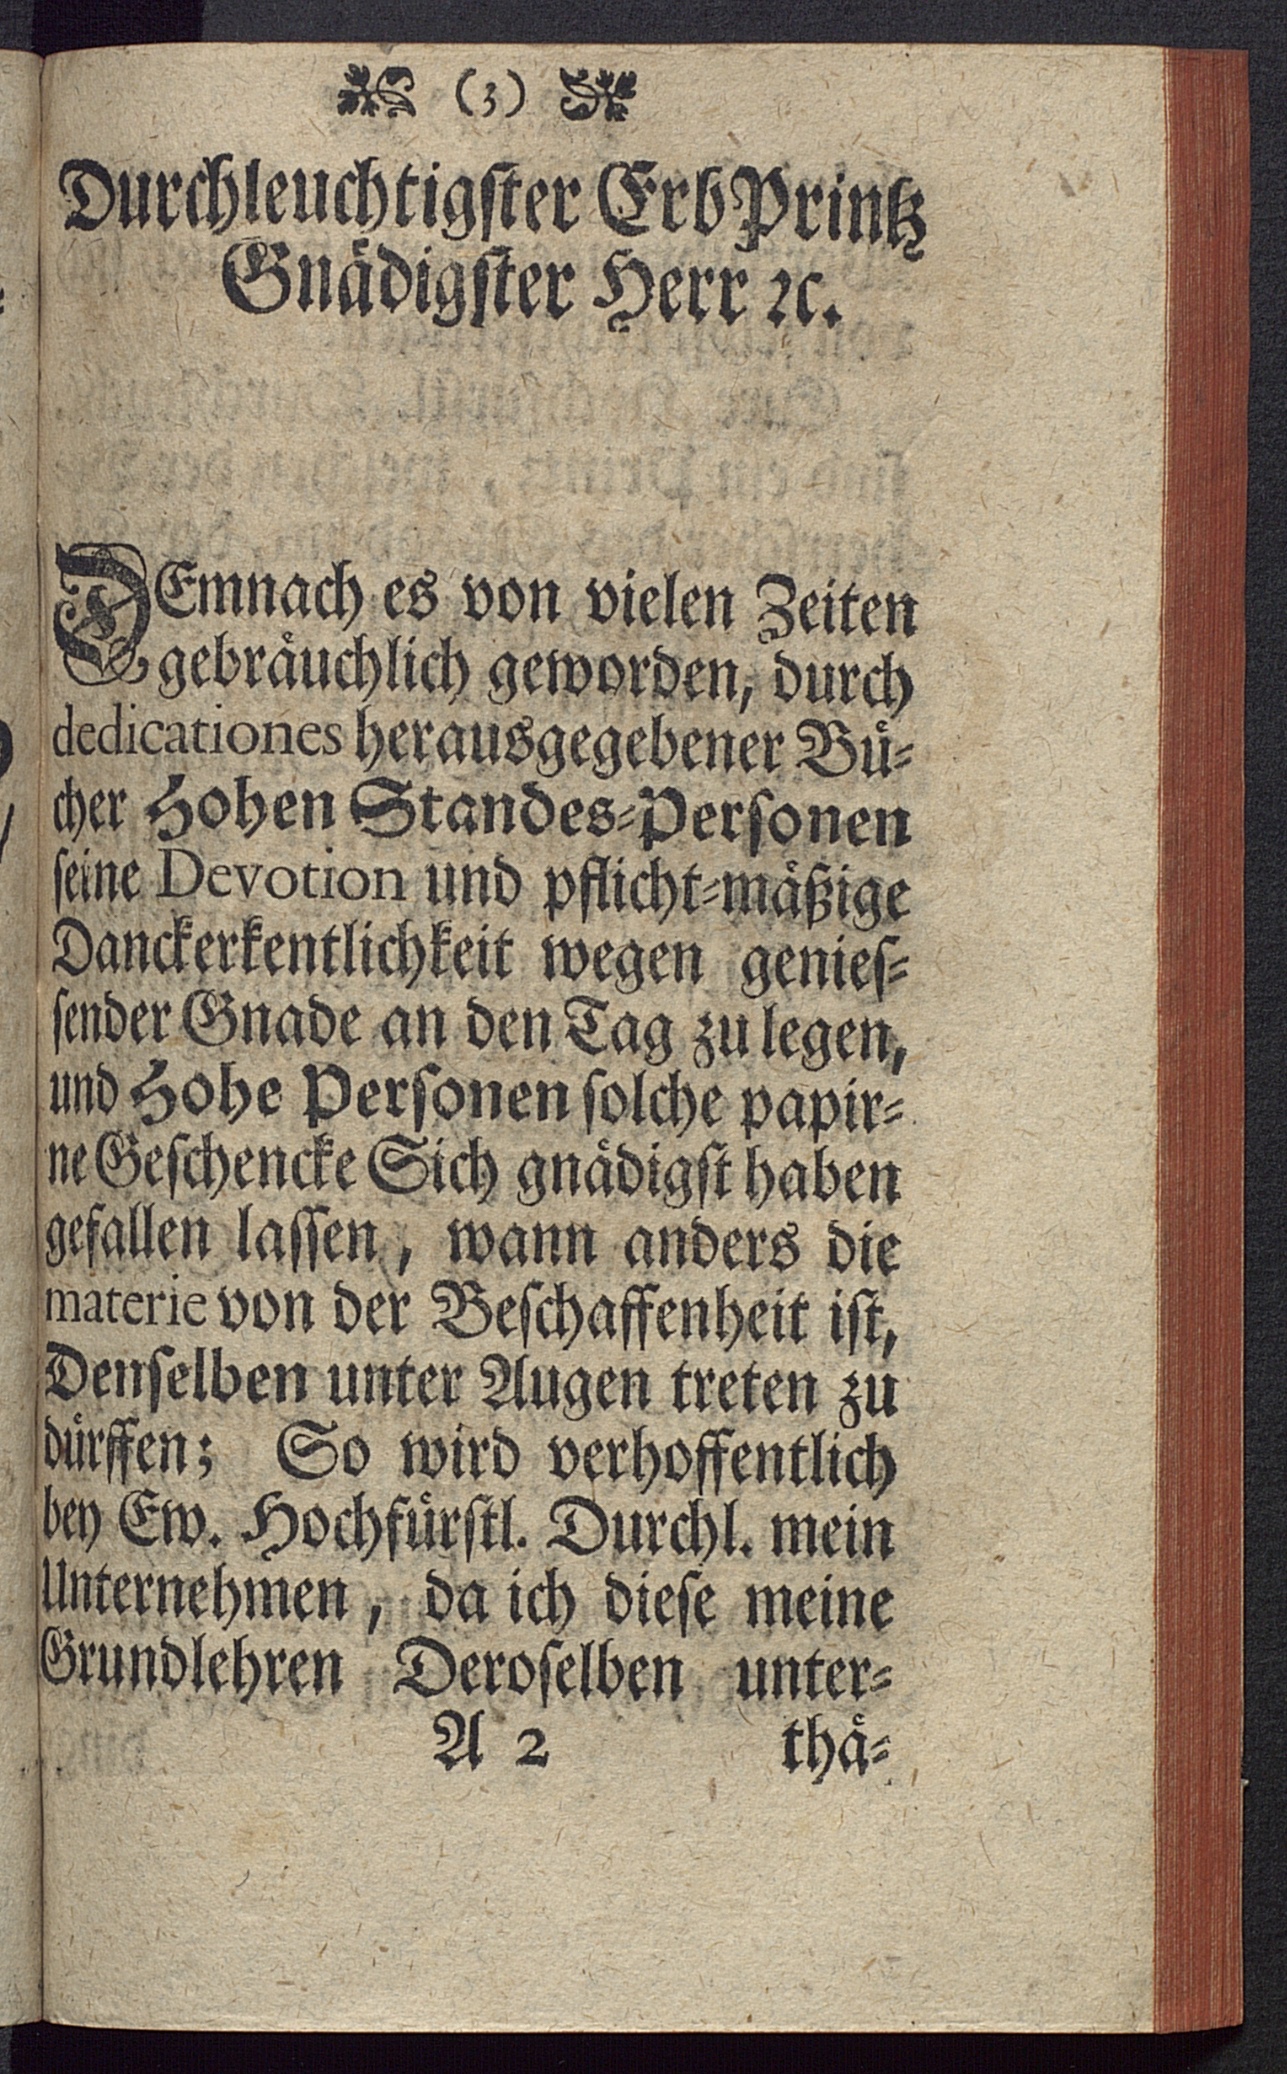 (3)
Durchleuchtigſter ErbPrintz
Gnådigſter Herr ꝛc.
DEmnach es von vielen Zeiten
gebråuchlich geworden, durch
dedicationes herausgegebener Bů-
cher Hohen Standes-Perſonen
ſeine Devotion und pflicht-måßige
Danckerkentlichkeit wegen genieſ-
ſender Gnade an den Tag zu legen,
und Hohe Perſonen ſolche papir-
ne Geſchencke Sich gnådigſt haben
gefallen laſſen, wann anders die
materie von der Beſchaffenheit iſt,
Denſelben unter Augen treten zu
důrffen; So wird verhoffentlich
bey Ew. Hochfůrſtl. Durchl. mein
Unternehmen, da ich dieſe meine
Grundlehren Deroſelben unter-
A 2 thå-